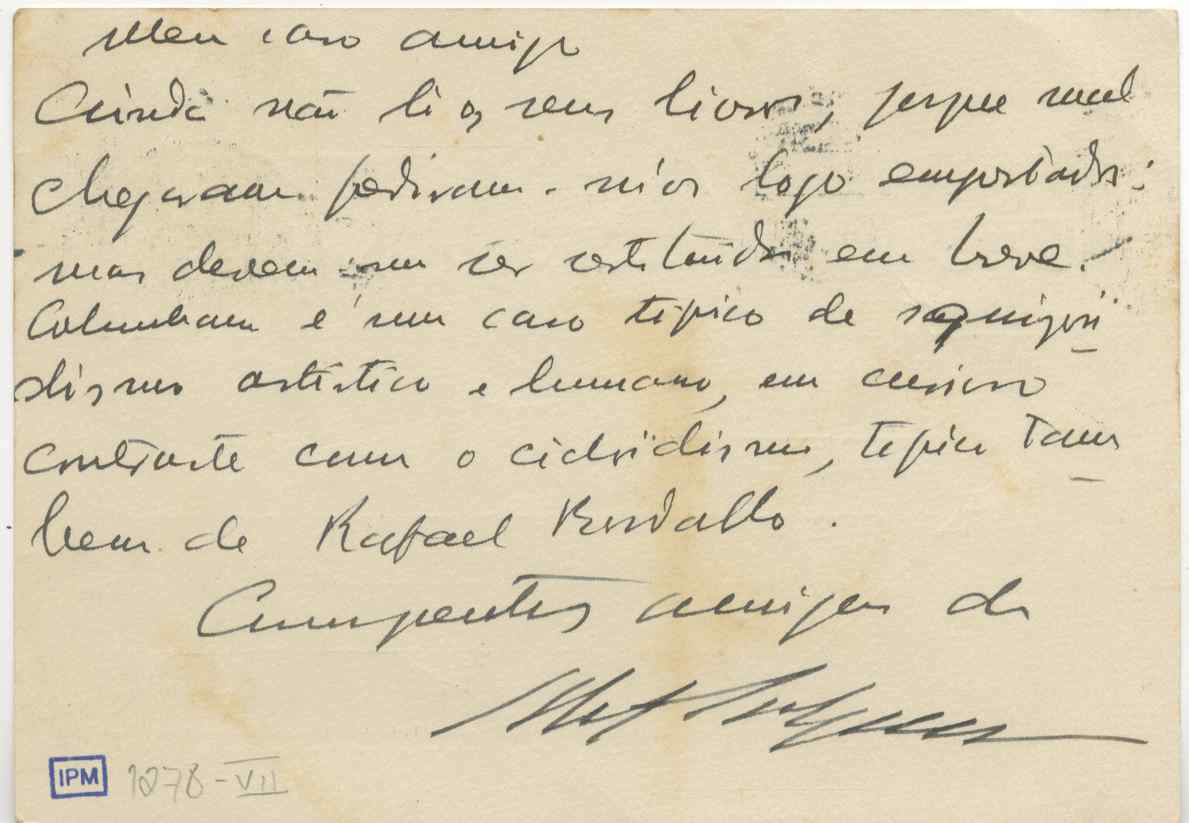 Meu caro amigo
Ainda não li os seus livros, porque mal
chegaram pediram-mos logo emprestados:
mas devem-me ser restituidos em breve.
Columbano é um caso tipico de
dismo artistico e humano, em curioso
contraste com o cicloidismo, tipico tam
bem de Rafael Bordallo.
Cumptos amigos do
IPM 1278-VII